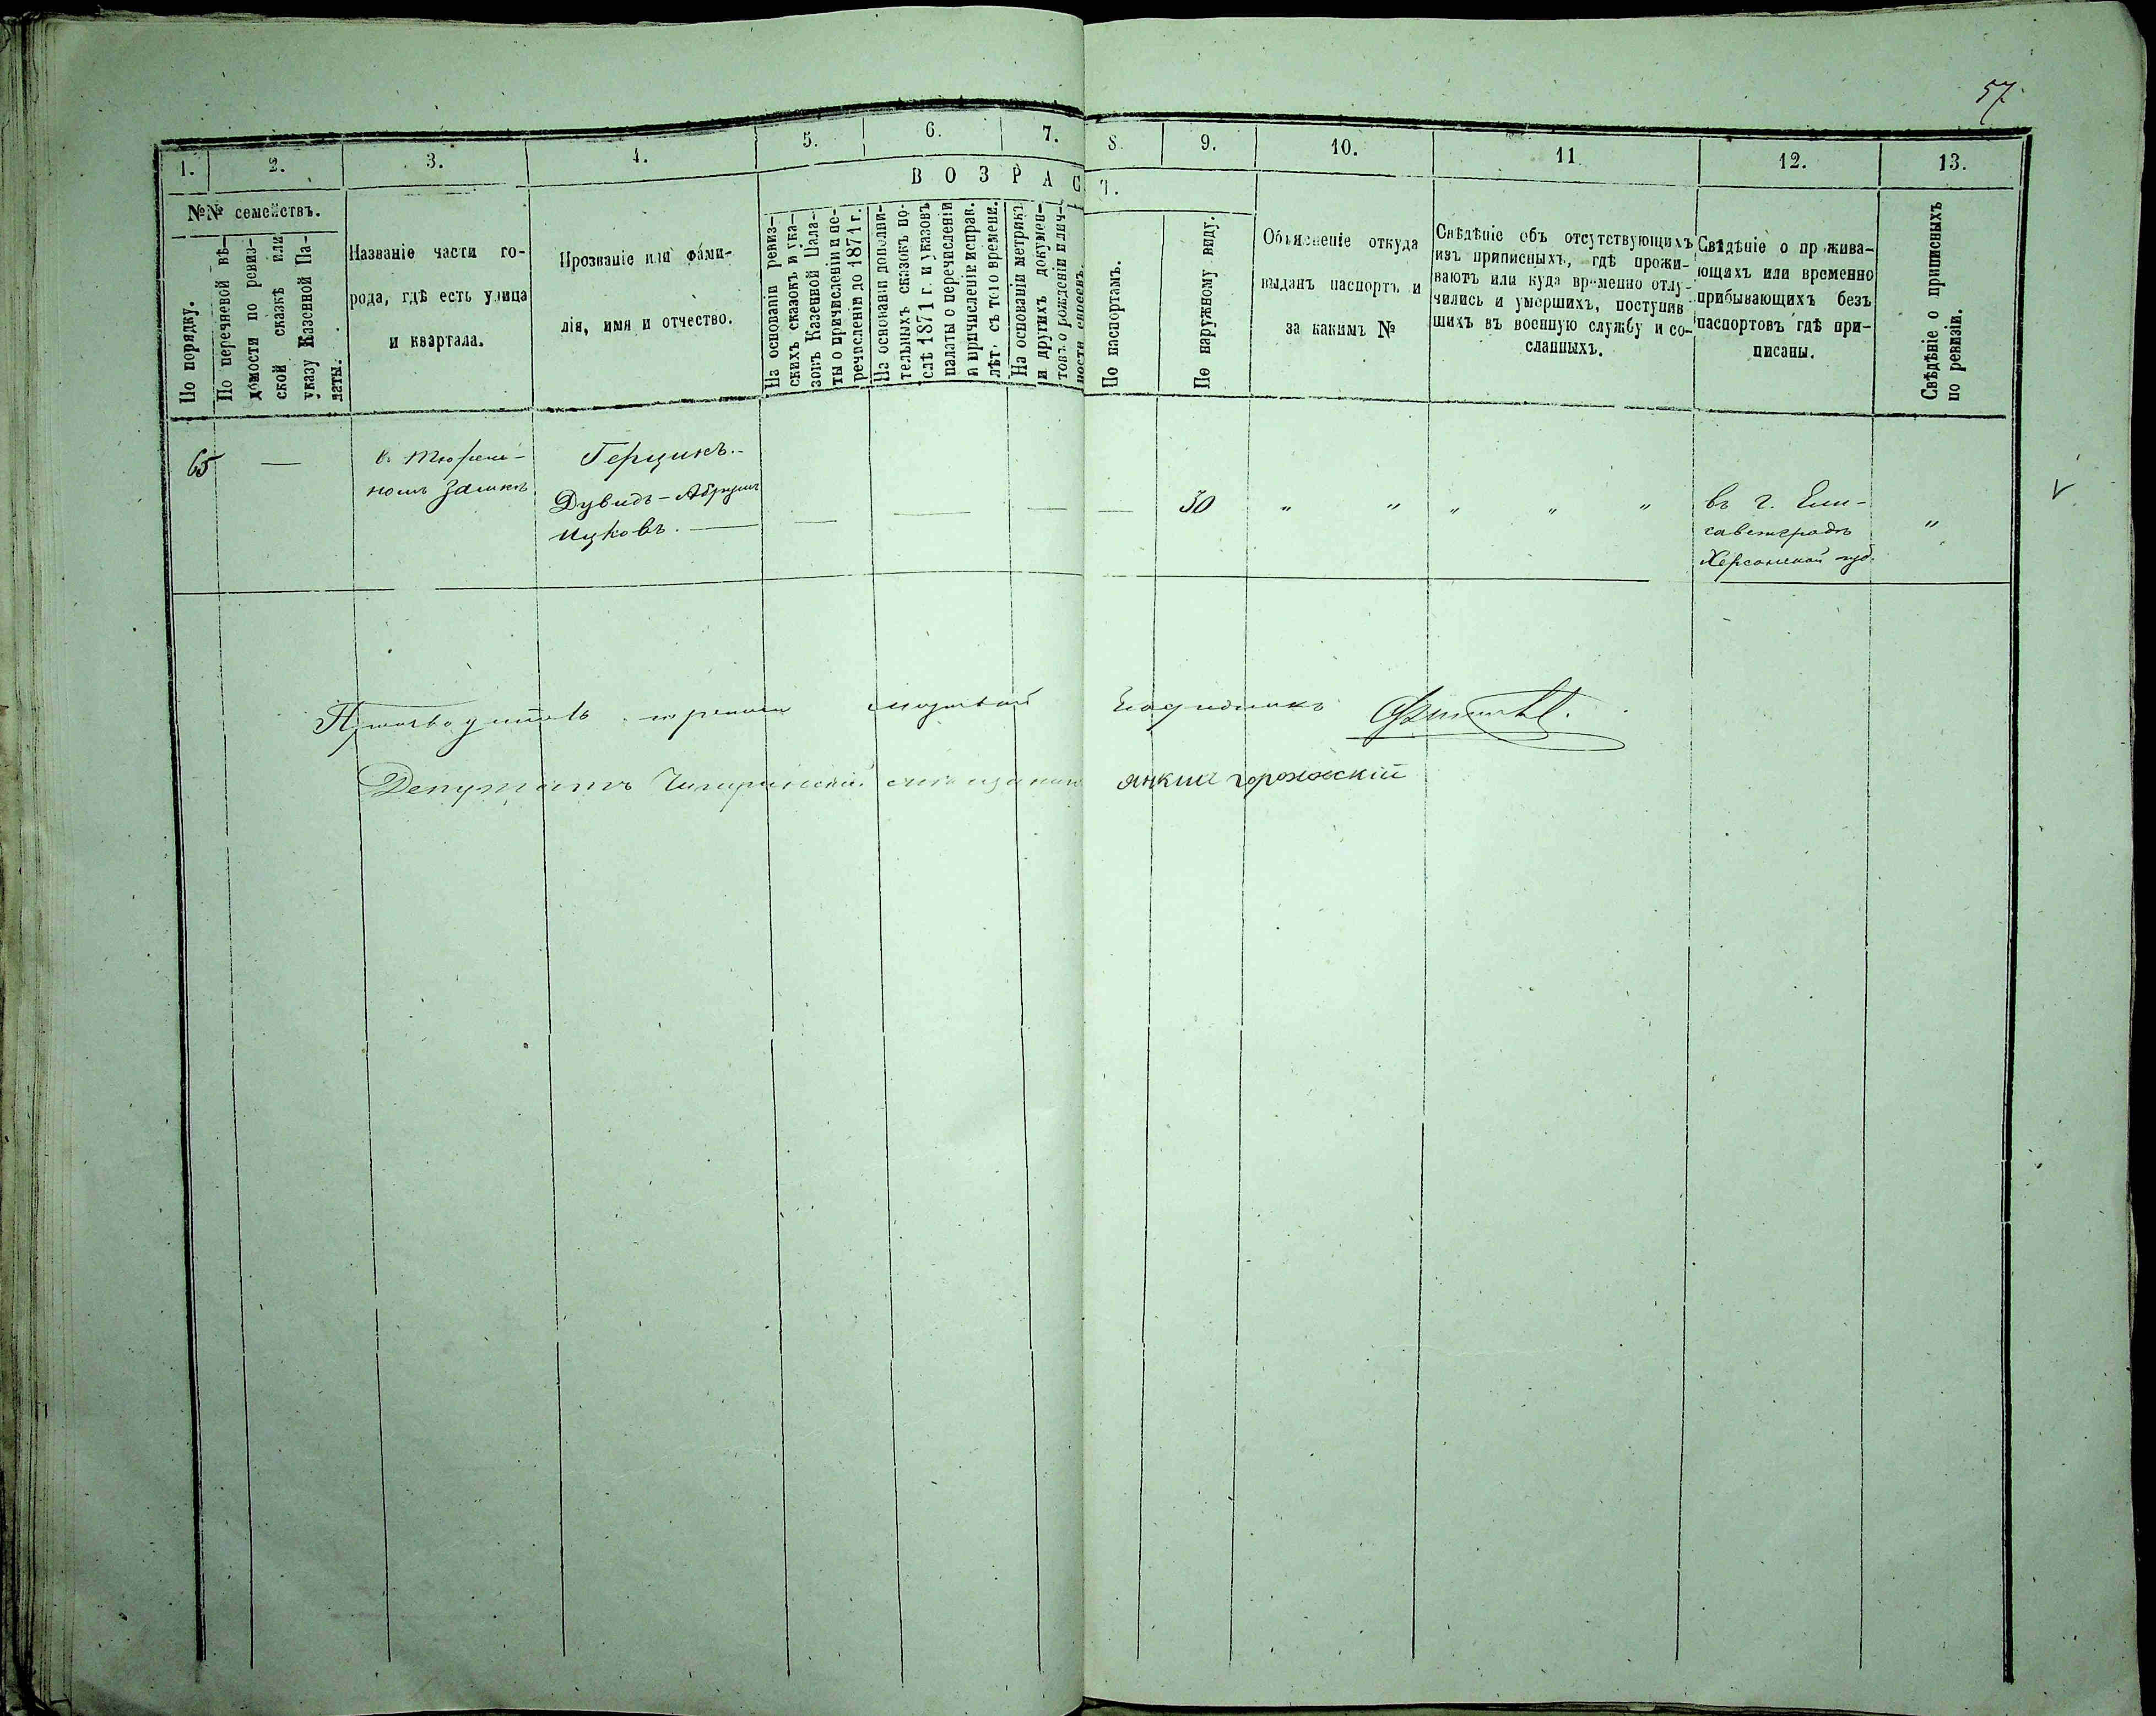 57
1. 2. 3. 4. 5. 6. 7. 8. 9. 10. 11 12. 13.
№№ семействъ.
По порядку.
По перечневой вѣ-
домости по ревиз-
ской сказкѣ или
указу Казенной Па-
латы.
Названіе части го-
рода, гдѣ есть улица
и квартала.
Прозваніе или Фами-
лія, имя и отчество.
ВОЗРАСТ.
На основаніи ревиз-
скихъ сказокъ и ука-
зовъ Казенной Пала-
ты о причисленіи и пе-
речисленіи до 1871 г.
На основаніи дополни-
тельныхъ сказокъ по-
слѣ 1871 г. и указовъ
палаты о перечисленіи
и причисленіи исправ.
лѣт. съ того времени.
На основаніи метрикъ
и другихъ докумен-
товъ о рожденіи и лич-
ности
По паспортамъ.
По наружному виду.
Объясненіе откуда
выданъ паспортъ и
за какимъ №
Свѣдѣніе объ отсутствующихъ
изъ приписныхъ, гдѣ прожи-
ваютъ или куда временно отлу-
чились и умершихъ, поступив-
шихъ въ военную службу и со-
сланныхъ.
Свѣдѣніе о прожива-
ющихъ или временно
прибывающихъ безъ
паспортовъ гдѣ при-
писаны.
Свѣдѣніе о приписныхъ
по ревизіи.
65 — в. Тюрем- Герцикъ.-
номъ Замкѣ Дувидъ-Абрумъ
Ицковъ. — — — — — 30 " " " " " въ г. Ели-
саветградѣ "
Херсонской губ.
Депутатъ Чигиринскій мѣщанинъ Янкиль Горожскій